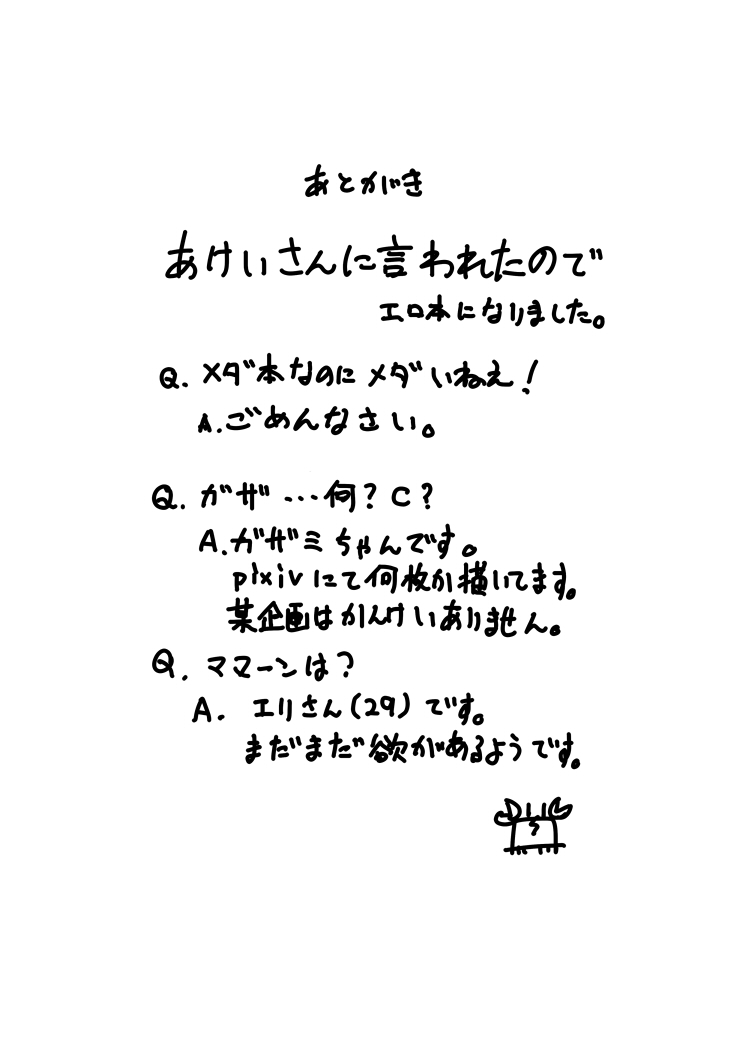 あとがき
あけいさんに言われたので
エロ本になりました。
Q. メダ本なのにメダいねえ！
A. ごめんなさい。
Q. ガザ…何？C？
A. ガザミちゃんです。
pixivにて何枚か描いてます。
某企画はかんけいありません。
Q. ママーンは？
A. エリさん(29)です。
まだまだ欲があるようです。